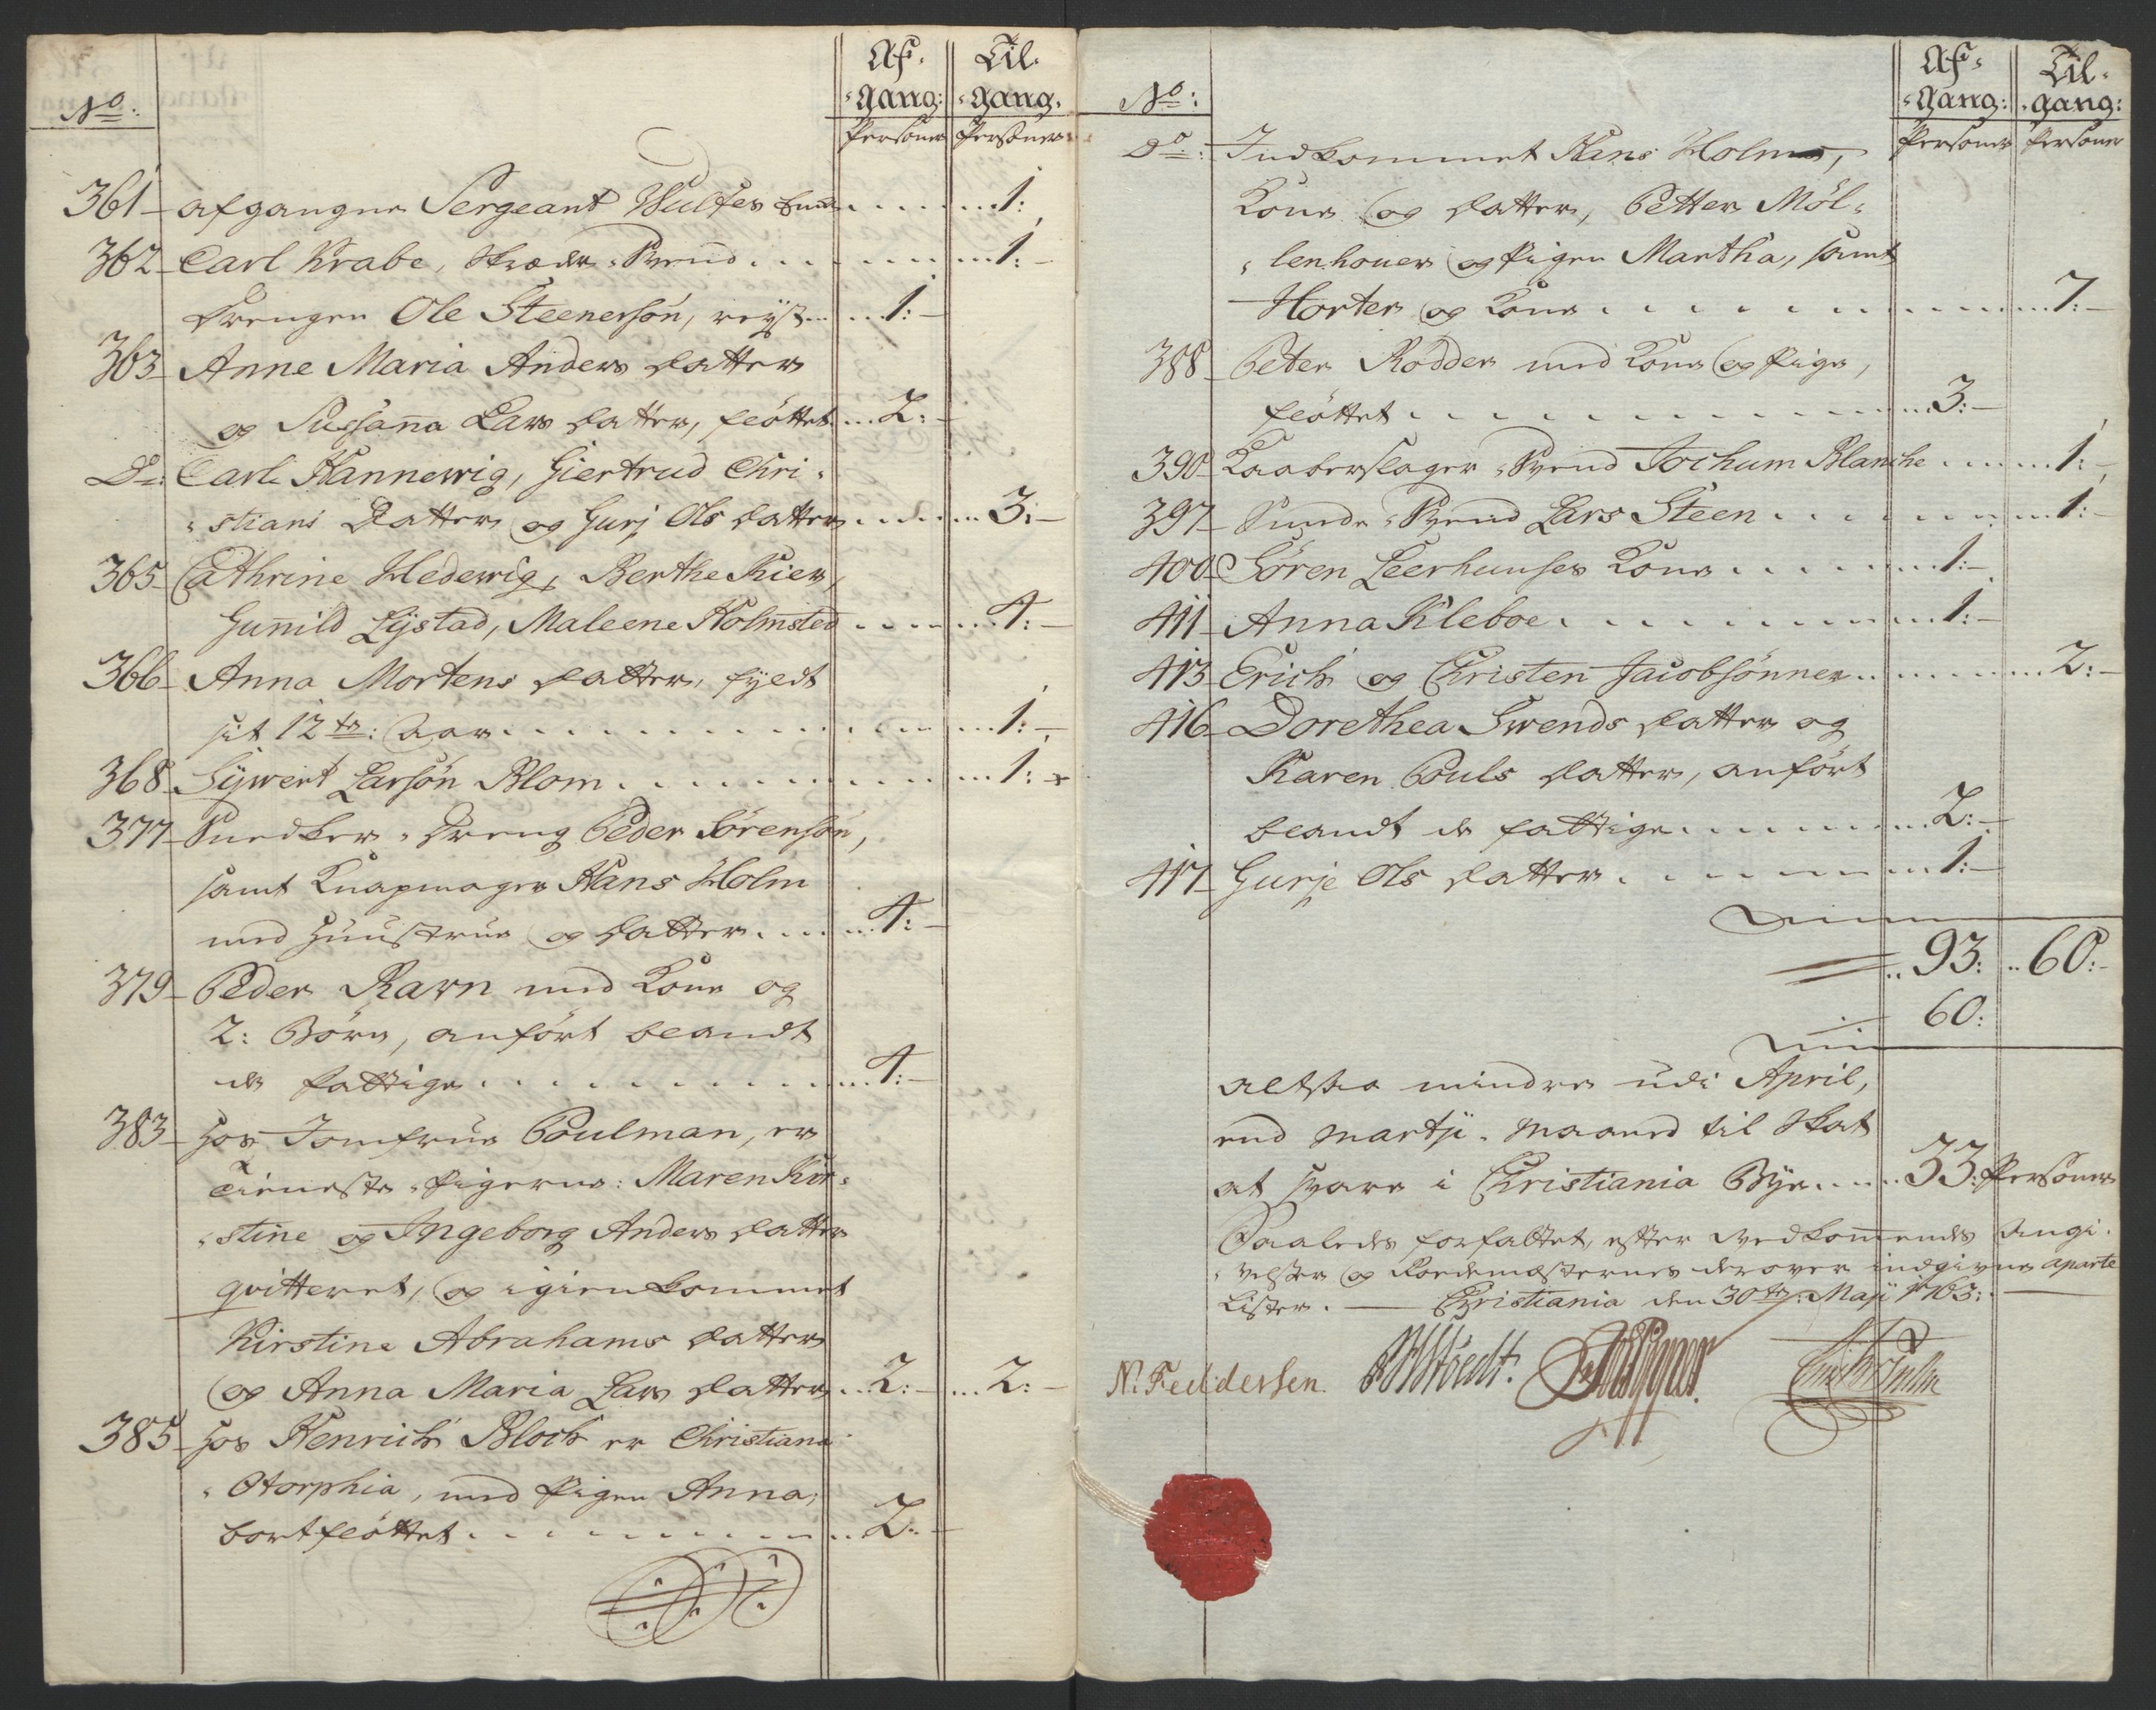 No:
Af-
gang:
Personer
Til-
gang.
Personer
361 afgangne Sergeant Wulfes Enke . . . . 1:
362 Carl Krabe, Skræder-Svend . . . . 1:
Drengen Ole Steenersön, reyst . . 1:
363 Anne Maria Anders Datter
og Sussanna Lars Datter, flöttet . . 2:
Do: Carl Hannewig, Giertrud Chri-
-stians Datter og Gurj Ols Datter . . . . 3:
365 Cathrine Hedewig, Berthe Kier,
Gunild Lystad, Maleene Holmsted . . . . 4:
366 Anna Mortens Datter, fyldt
sit 12te: Aar . . . . 1:
368 Sywert Larsön Blom . . . . 1:
377 Snedker-Dreng Peder Sörensön,
samt Knapmager Hans Holm
med Huustrue og Datter . . . . 4:
379 Peder Ravn med Kone og
2: Börn, anfört blandt
de fattige . . . . 4:
383 Hos Jomfrue Poulman, er
Tieneste-Pigerne: Maren Kir-
-stine og Ingeborg Anders Datter
qvitteret, og igien kommet
Kirstine Abrahams Datter
og Anna Maria Lars Datter . . 2: . . 2:
385 Hos Henrich Bloch er Christiana
Storphia, med Pigen Anna,
bortflöttet . . . . 2:
No:
Af-
gang:
Personer
Til-
gang:
Personer
Do: Indkommet Hans Holm,
Kone og Datter, Petter Möl-
-lenhouer og Pigen Martha, samt
Horter og Kone . . . . 7:
388 Peter Rodder med Kone og Pige,
flöttet . . . . 3:
390 Kaaberslager-Svend Jochum Blanche . . . . 1:
397 Svend Lars Steen . . . . 1:
400 Sören Leerhuuses Kone . . . . 1:
411 Anna Kleboe . . . . 1:
413 Erich og Christen Jacobsönner . . . . 2:
416 Dorethea Swends Datter og
Karen Pouls Datter, anfört
blandt de fattige . . . . 2:
417 Gurje Ols Datter . . . . 1:
93: 60:
60:
altsaa mindre udi April,
end Martji-Maaned til Skat
at svare i Christiania Bye . . . . 33: Personer
Saaledes forfattet, efter Vedkommendes Angi-
-velser og Roedemesternes derover indgivne aparte
Lister. — Christiania den 30te: Maji 1763:
N: Feddersen.